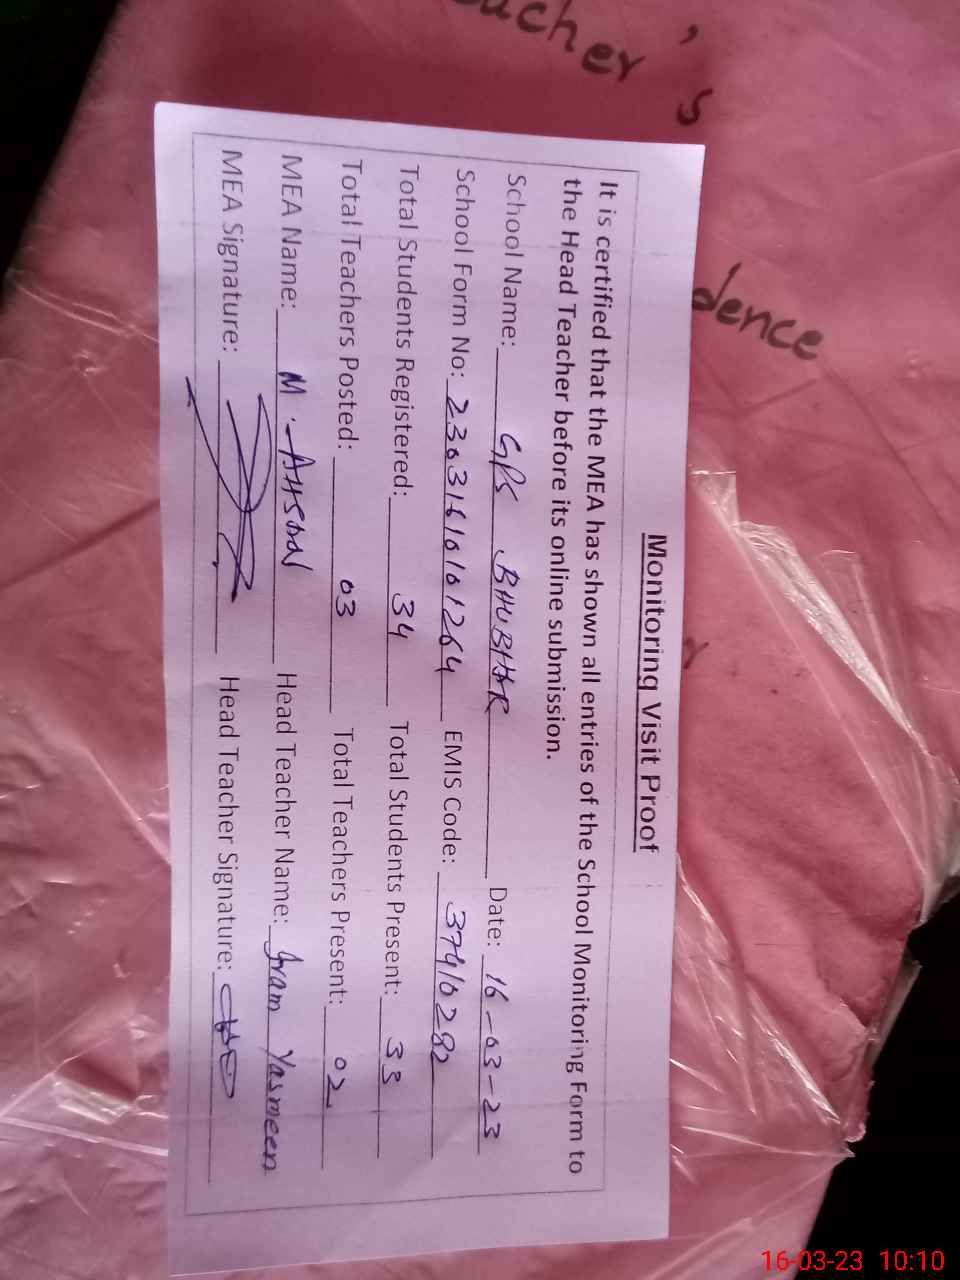 Teacher's
dence
Monitoring Visit Proof
It is certified that the MEA has shown all entries of the School Monitoring Form to
the Head Teacher before its online submission.
School Name: GPS BHUBHAR Date: 16-03-23
School Form No: 23031610101264 EMIS Code: 37410282
Total Students Registered: 34 Total Students Present: 33
Total Teachers Posted: 03 Total Teachers Present: 02
MEA Name: M. AHSAN Head Teacher Name: Iram Yasmeen
MEA Signature: Head Teacher Signature:
16-03-23 10:10